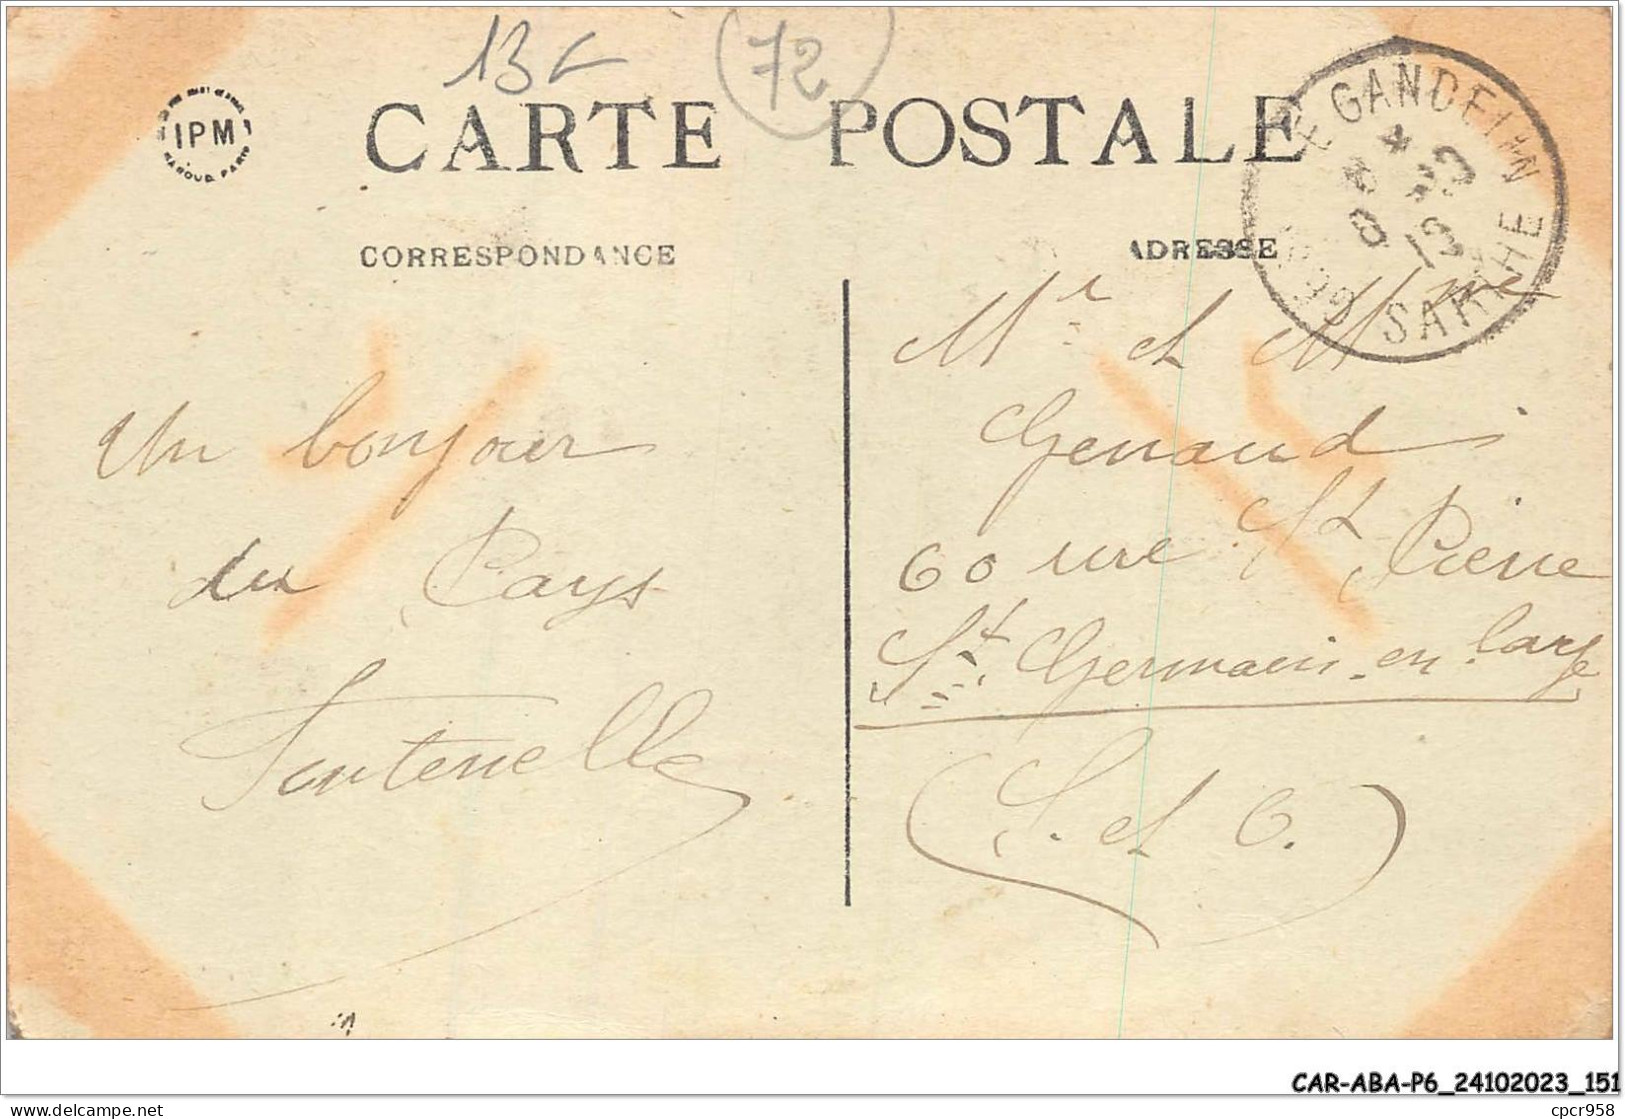 13€
72
IPM
CARTE POSTALE
LE GANDELIN
SARTHE
8
13
CORRESPONDANCE
ADRESSE
Un bonjour
du Pays
Fontenelle
Mr et Mme
Genaud
60 rue St Pierre
St Germain-en-Laye
(S. et O.)
CAR-ABA-P6_24102023_151
Delcampe.net
cpcr958